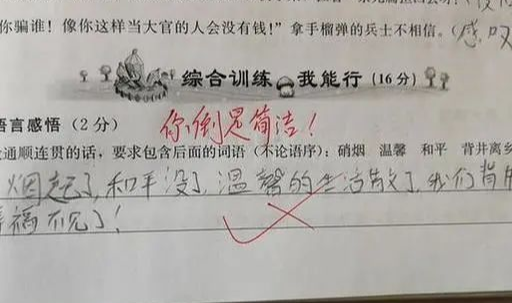 你骗谁！像你这样当大官的人会没有钱！”拿手榴弹的兵士不相信。（感叹
综合训练 我能行（16分）
语言感悟（2分）
你倒是简洁！
通顺连贯的话，要求包含后面的词语（不论语序）：硝烟 温馨 和平 背井离乡
烟起了，和平没了，温馨的生活散了，我们背井
福不见了！